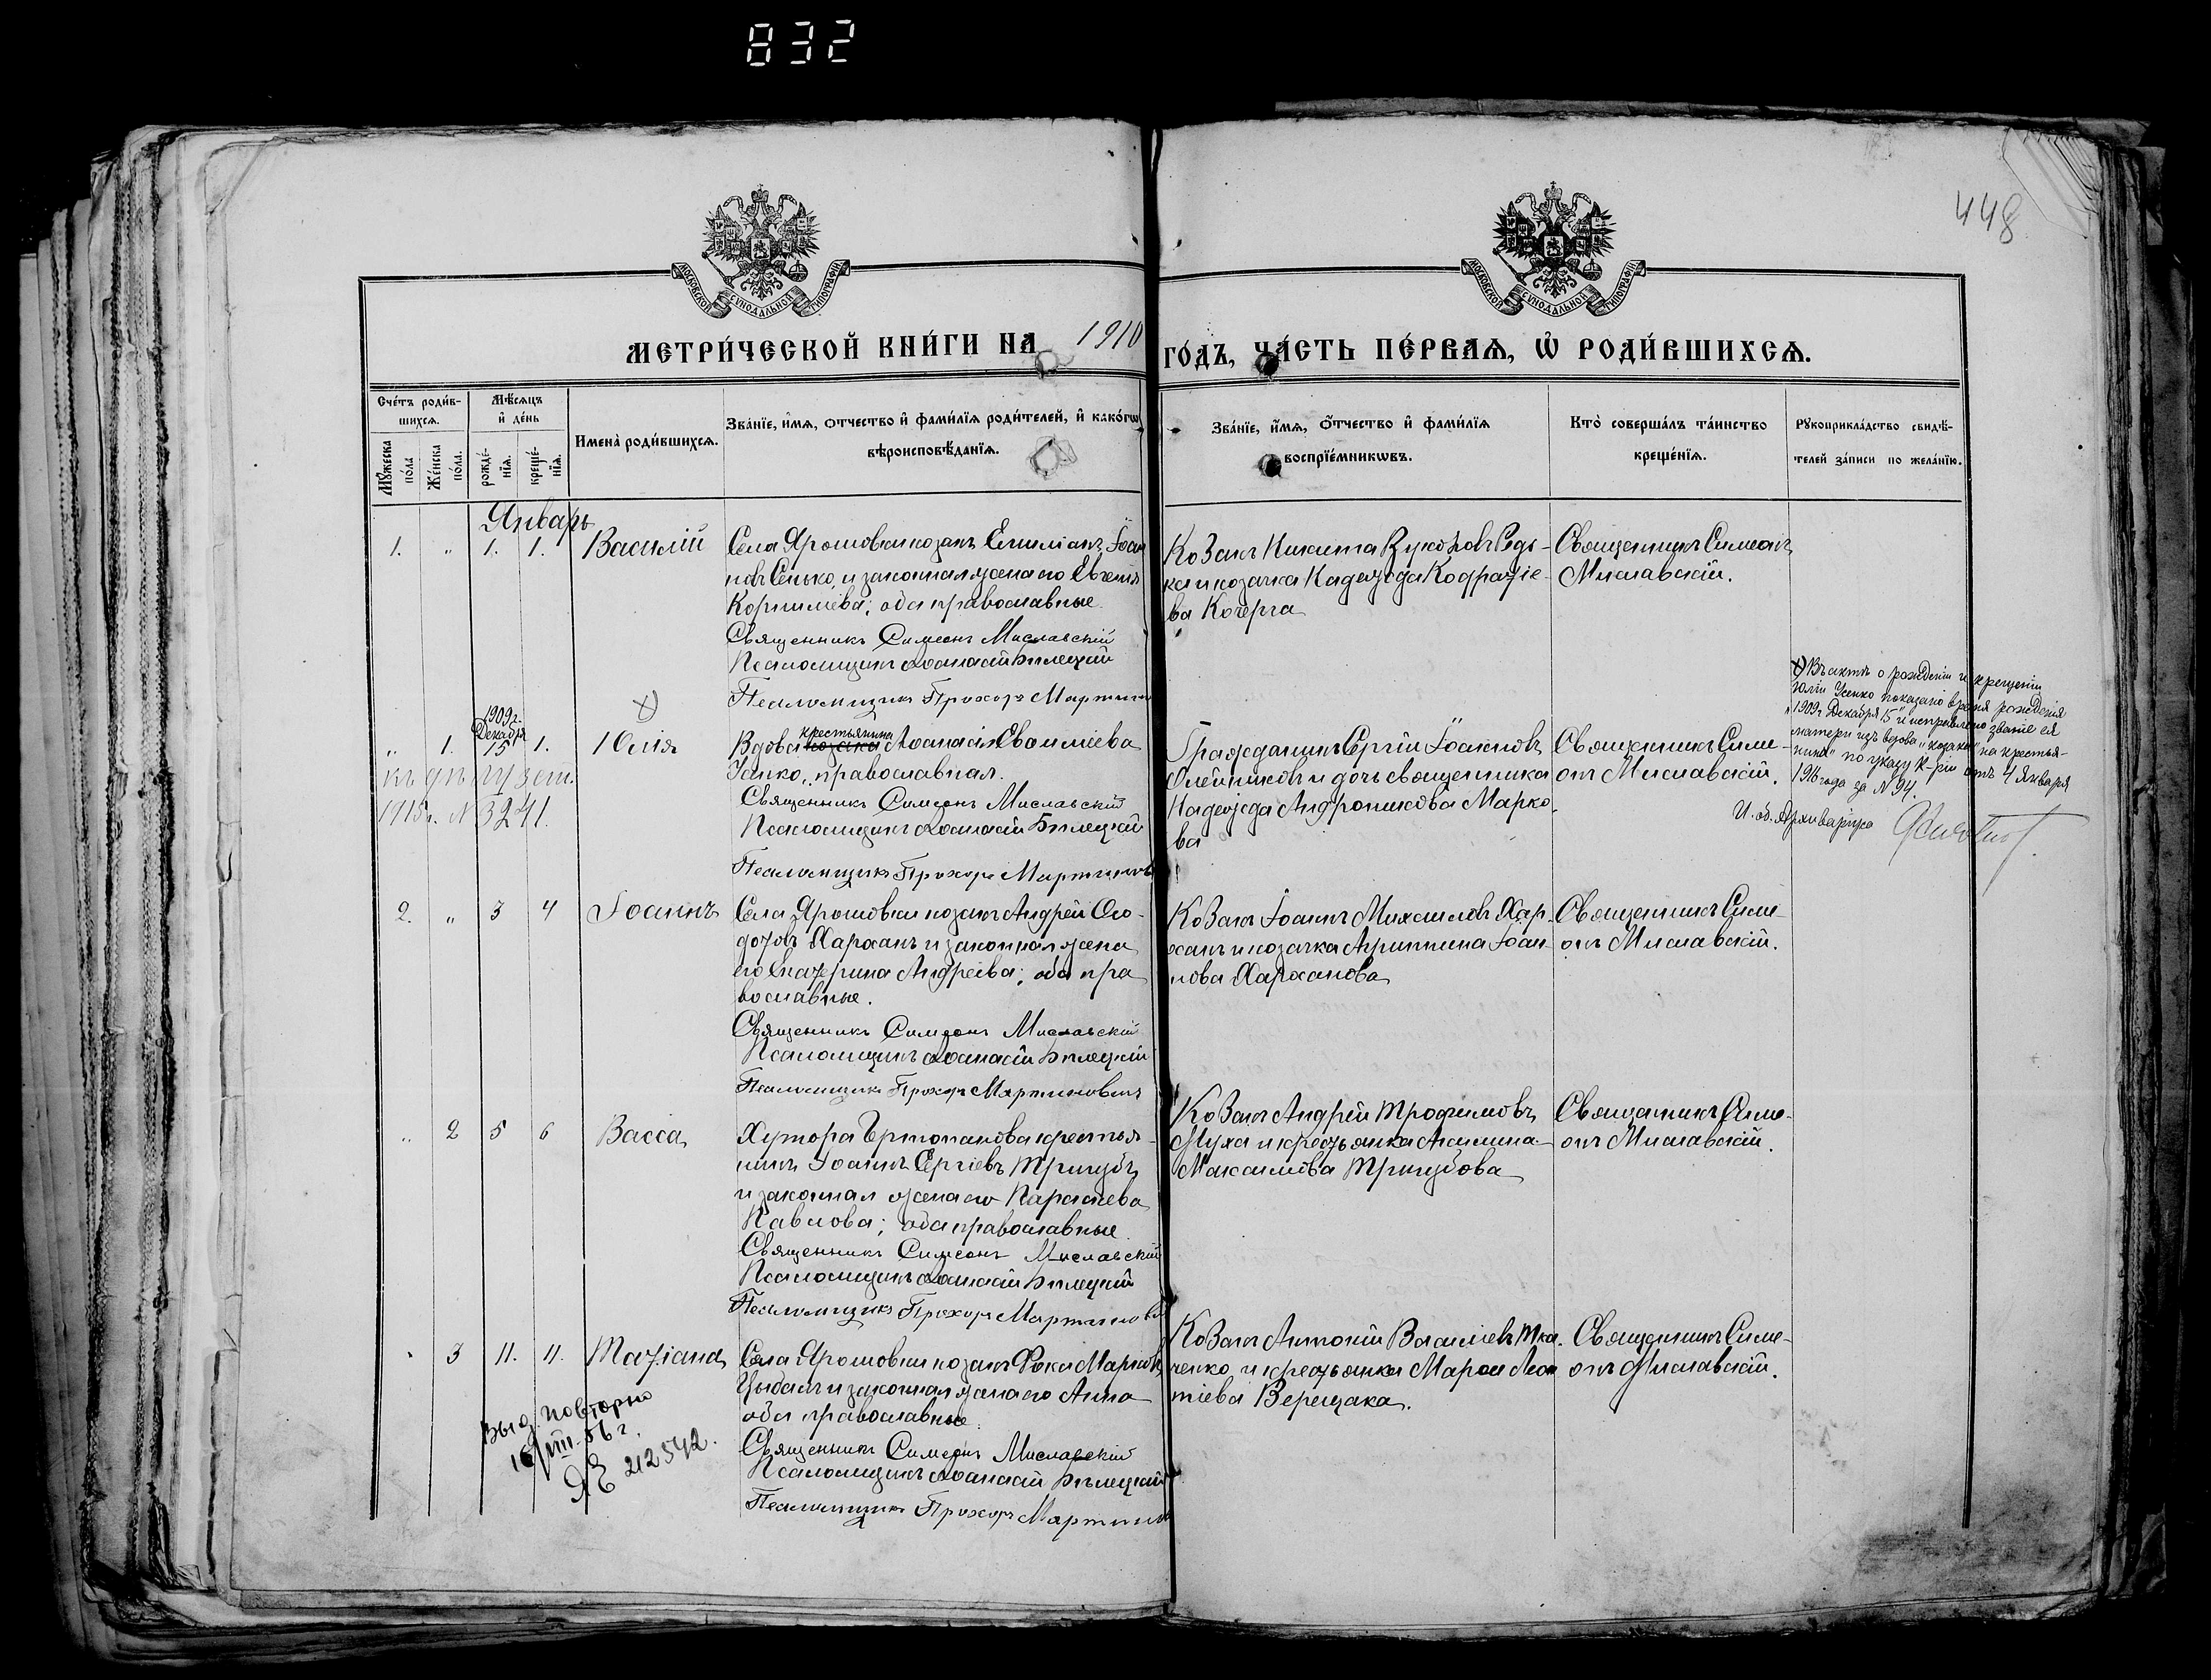 832
448
МОСКОВСКОЙ СѴНОДАЛЬНОЙ ТИПОГРАФІИ
МОСКОВСКОЙ СѴНОДАЛЬНОЙ ТИПОГРАФІИ
МЕТРИ́ЧЕСКОЙ КНИ́ГИ НА 1910 ГО́ДЪ, ЧА́СТЬ ПЕ́РВАѦ, Ѡ҆ РОДИ́ВШИХСѦ.
Сче́тъ роди́вшихсѧ.
Мꙋ́жеска по́ла
Же́нска по́ла.
Мѣ́сѧцъ и҆ де́нь
рожде́нїѧ.
креще́нїѧ.
Имена̀ роди́вшихсѧ.
Зва́нїе, и҆́мѧ, ѻ҆́тчество и҆ фами́лїѧ роди́телей, и҆ како́гѡ
вѣроисповѣ́данїѧ.
Зва́нїе, и҆́мѧ, ѻ҆́тчество и҆ фами́лїѧ
воспрїе́мникѡвъ.
Кто̀ соверша́лъ та́инство
креще́нїѧ.
Рꙋкоприкла́дство свидѣ́-
телей за́писи по жела́нїю.
Январь
1. „ 1. 1. Василій
Села Ярошовки козакъ Емиліанъ Іоан
новъ Сенько, и законная жена его Евгенія
Корниліева; оба православные.
Священникъ Симеонъ Миславскій
Псаломщикъ Аѳанасій Билецкій
Псаломщикъ Прохоръ Мартин
Козакъ Никита
ка и козачка Надежда
ва Кочерга
Священникъ Симеонъ
Миславскій.
х)
1909 г.
Декабря
„ 1. 15 1. Юлія
къ дѣлу
1915 г. № 3241.
крестьянина
Вдова козака Аѳанасія Евѳиміева
Усенко, православная.
Священникъ Симеонъ Миславскій
Псаломщикъ Аѳанасій Билецкій
Псаломщикъ Прохоръ Мартинов
Гражданинъ Сергій Іоанновъ
Олейниковъ и дочь священника
Надежда Андроникова Марко
ва
Священникъ Симе-
онъ Миславскій.
х) Въ актѣ о рожденіи и крещеніи
Юліи Усенко показано время рожденія
„1909 г. Декабря 15" и исправлено званіе ея
матери изъ вдова „козака" на крестья-
нина" по указу К-ріи отъ 4 Января
1916 года за № 94.
И. об. Архиваріуса
2. „ 3 4 Іоаннъ
Села Ярошовки козакъ Андрей Ѳео-
дотовъ Харханъ и законная жена
его Екатерина Андреева; оба пра
вославные.
Священникъ Симеонъ Миславскій
Псаломщикъ Аѳанасій Билецкій
Псаломщикъ Прохоръ Мартиновичъ
Козакъ Іоаннъ Михаиловъ Хар-
ханъ и козачка Агриппина Іоан-
нова Харханова
Священникъ Симе-
онъ Миславскій.
„ 2 5 6 Васса
Хутора крестья-
нинъ Іоаннъ Сергіевъ Тригубъ
и законная жена его Параскева
Павлова; оба православные.
Священникъ Симеонъ Миславскій
Псаломщикъ Аѳанасій Билецкій
Псаломщикъ Прохоръ Мартинови
Козакъ Андрей Трофимовъ
Муха и крестьянка Акилина
Максимова Тригубова
Священникъ Симе-
онъ Миславскій.
3 11. 11. Татіана
Села Ярошовки козакъ Фока Марковъ
Цыбань и законная жена его Анна
оба православные.
Священникъ Симеонъ Миславскій
Псаломщикъ Аѳанасій Билецкій
Псаломщикъ Прохоръ Мартинов
Козакъ Антоній Василіевъ Тка-
ченко и крестьянка Марѳа Леон
тіева Верещака.
Священникъ Симе-
онъ Миславскій.
Выд. повторно
16/VIII-56 г.
ЯЕ 212542.